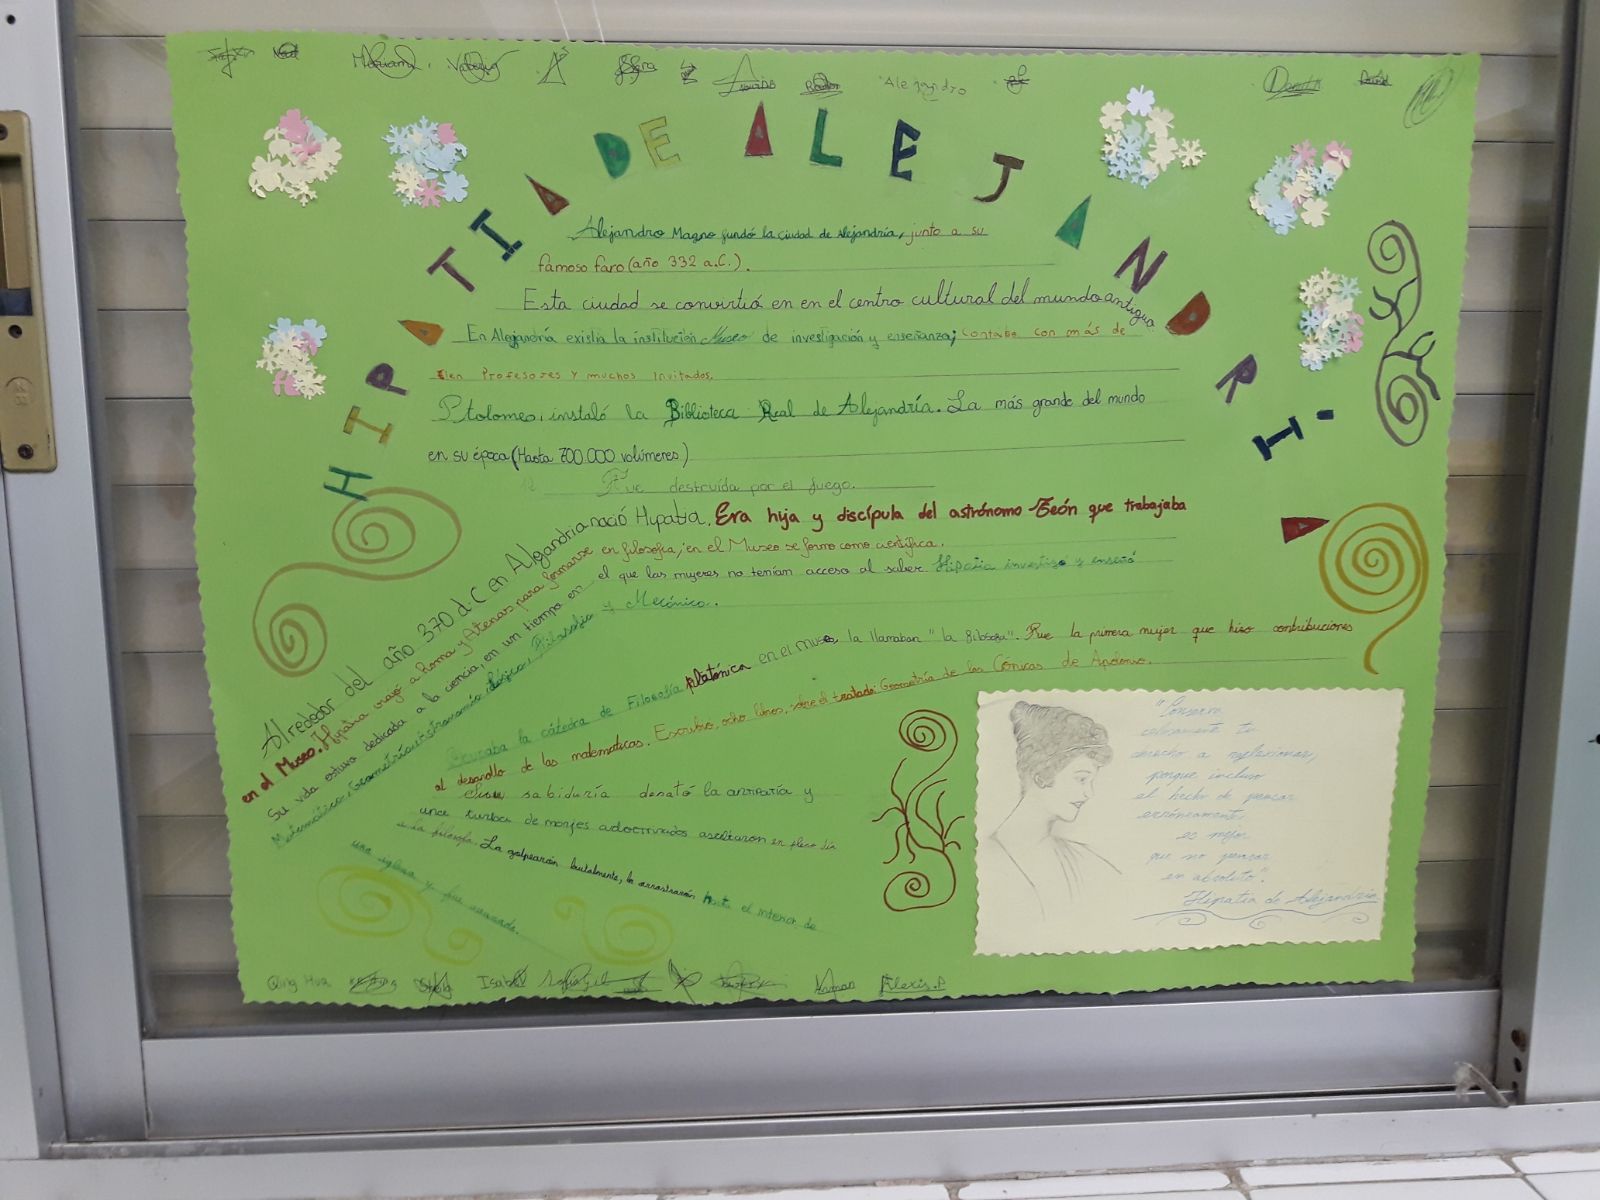 Mariam. Valeria
Sara
Alejandro
David
HIPATIA DE ALEJANDRÍA
Alejandro Magno fundó la ciudad de Alejandría, junto a su
famoso faro (año 332 a.C.).
Esta ciudad se convirtió en en el centro cultural del mundo antiguo
En Alejandría existía la institución Museo de investigación y enseñanza; contaba con más de
cien Profesores y muchos invitados.
Ptolomeo, instaló la Biblioteca Real de Alejandría. La más grande del mundo
en su época (Hasta 700.000 volúmenes)
Fue destruída por el fuego.
Alrededor del año 370 d.C en Alejandria nació Hipatia. Era hija y discípula del astrónomo Teón que trabajaba
en el Museo. Hipatia viajó a Roma y Atenas para formarse en filosofía, en el Museo se formo como científica.
Su vida estuvo dedicada a la ciencia, en un tiempo en el que las mujeres no tenían acceso al saber. Hipatia investigó y enseñó
Matemática, Geometría, Astronomía, Lógica, Filosofía y Mecánica.
Ocupaba la cátedra de Filosofía platónica en el museo, la llamaban "la filósofa". Fue la primera mujer que hizo contribuciones
al desarrollo de las matemáticas. Escribió, ocho libros, sobre el tratado: Geometría de las Cónicas de Apolonio.
Su sabiduría desató la antipatía y
una turba de monjes adoctrinados asaltaron en pleno día
a la filósofa. La golpearon brutalmente, la arrastraron hasta el interior de
una iglesia y fue
"Conserva
celosamente tu
derecho a reflexionar,
porque incluso
el hecho de pensar
erróneamente
es mejor
que no pensar
en absoluto".
Hipatia de Alejandría
Qing Hua Isabel Alexis.P